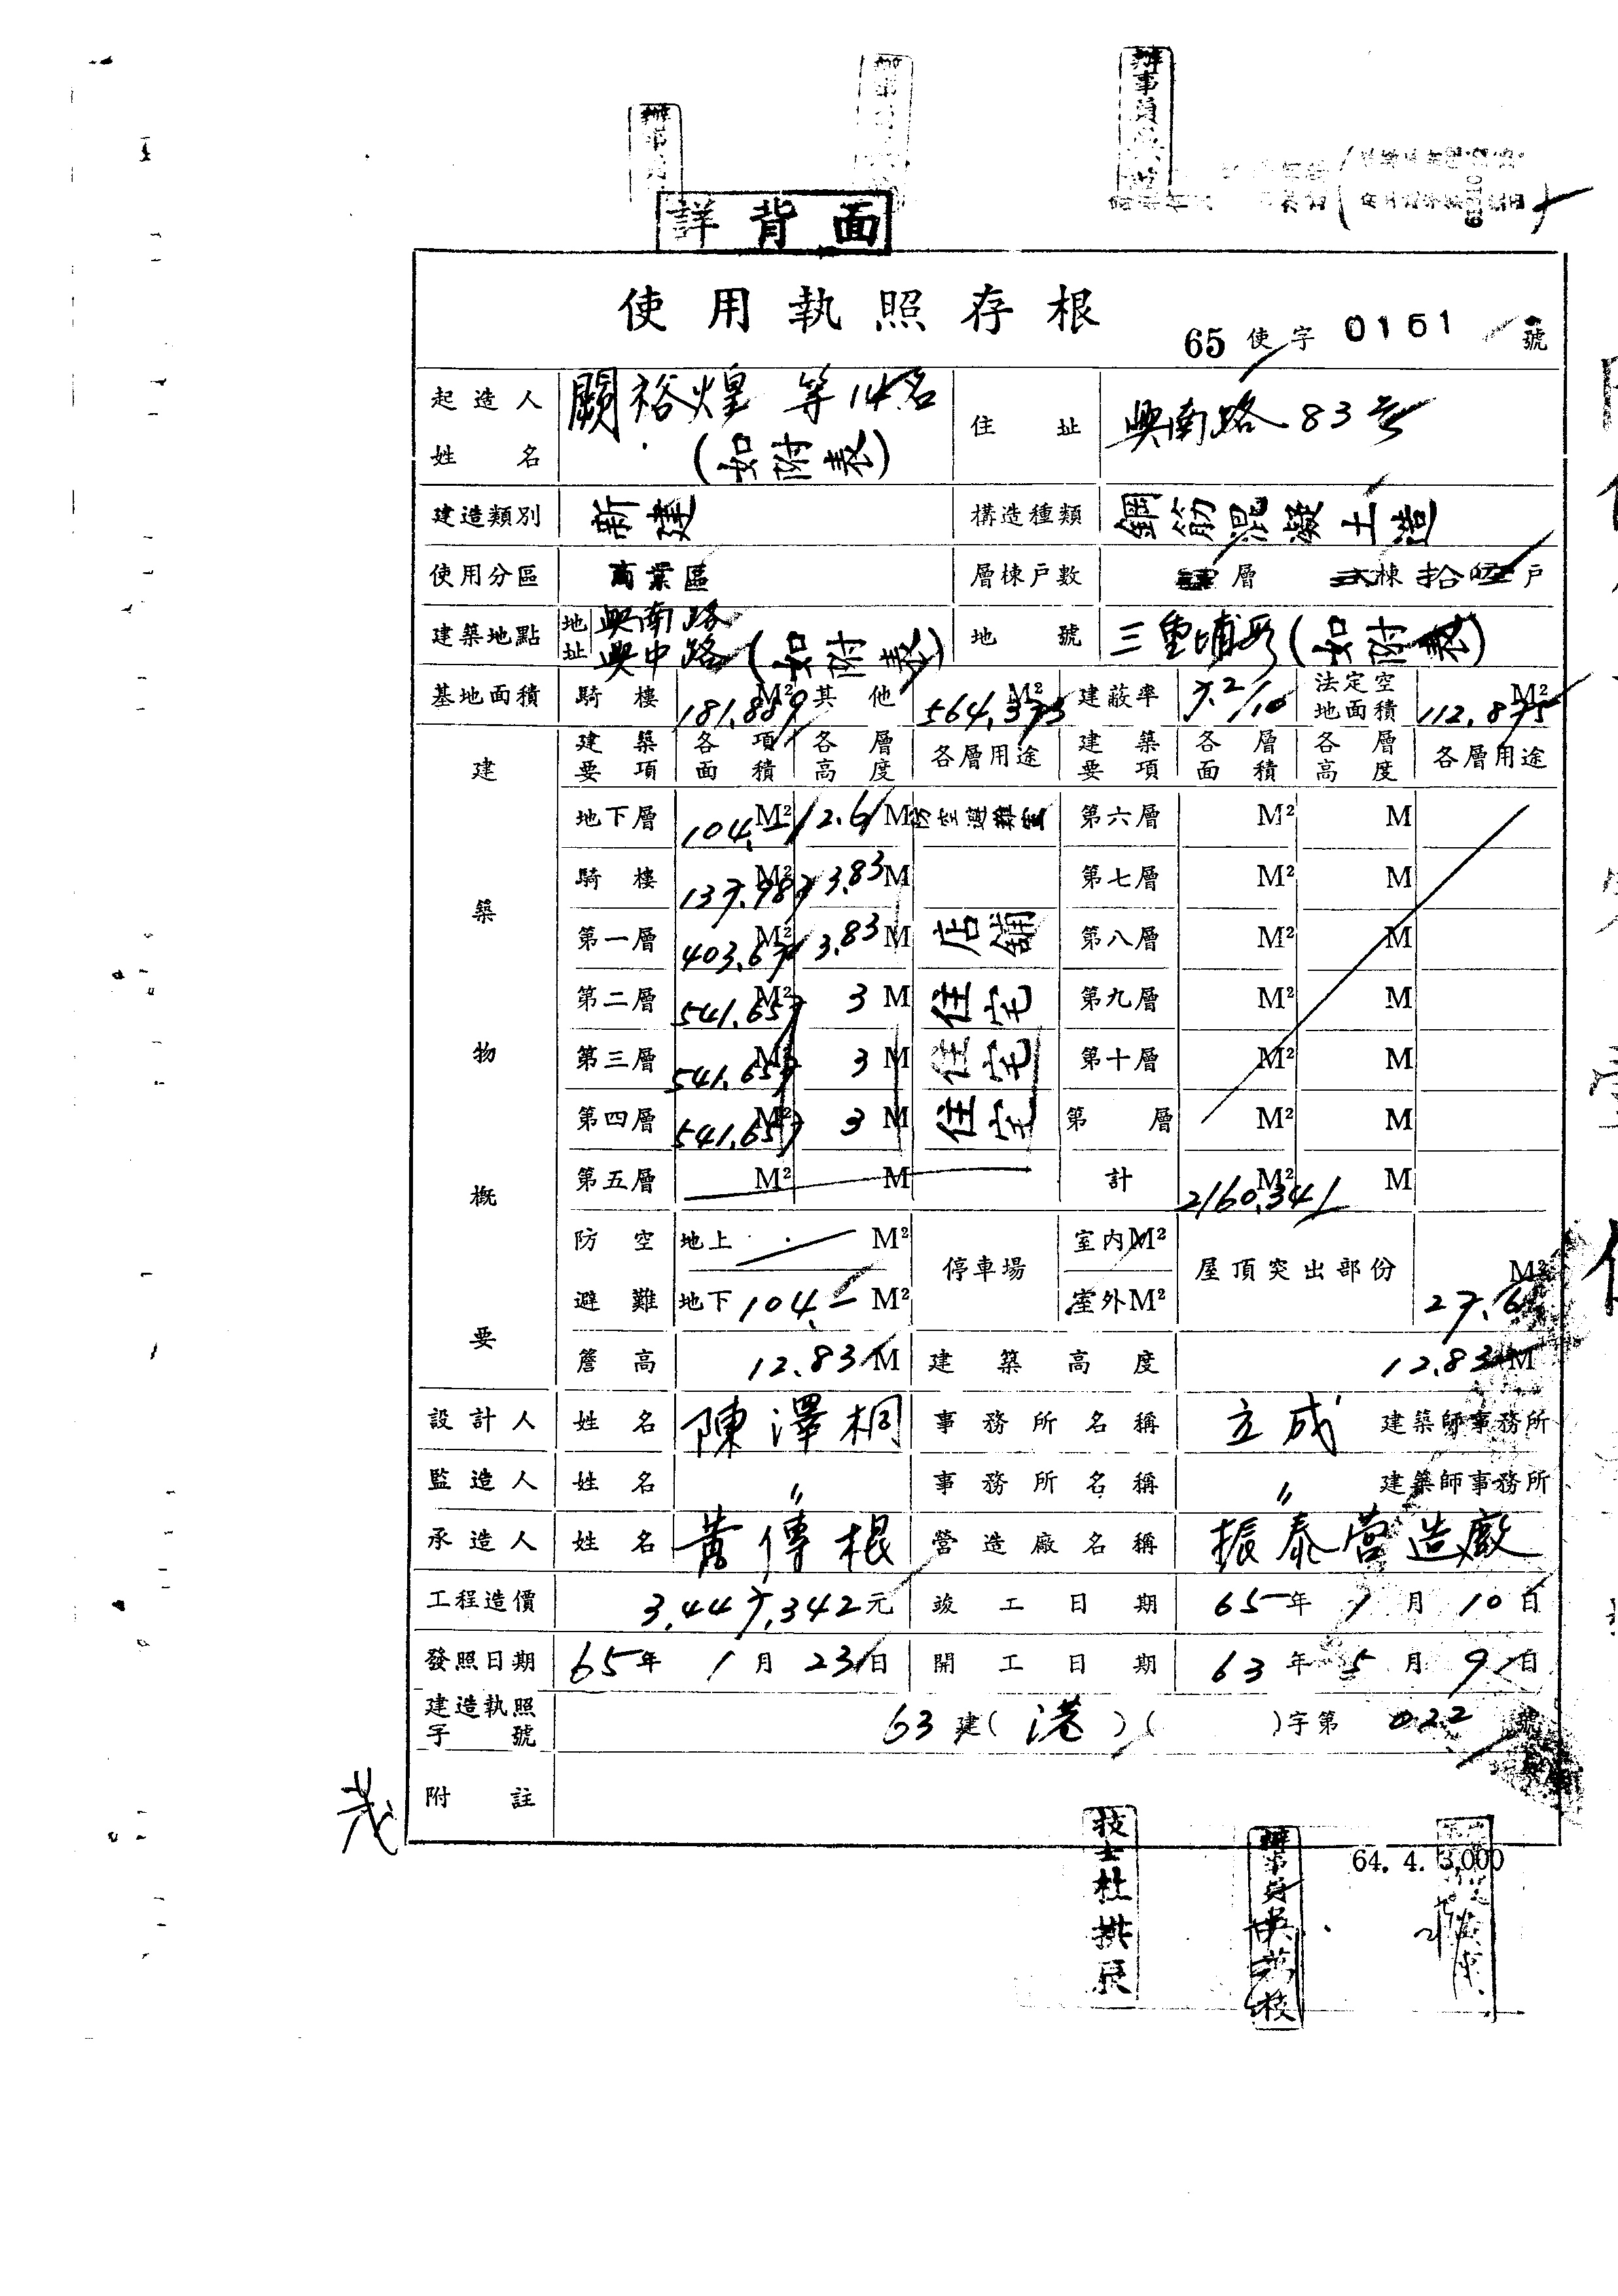 詳背面
使用執照存根
65使字0161號
起造人姓名 闕裕煌 等14名 (如附表) 住址 興南路83號
建造類別 新建 構造種類 鋼筋混凝土造
使用分區 商業區 層棟戶數 層 棟 拾 戶
建築地點 地址 興南路 興中路(如附表) 地號 三重埔段(如附表)
基地面積 騎樓 181.889 M² 其他 564.373 M² 建蔽率 7.2/10 法定空地面積 112.875 M²
建築物概要
建築要項 各項面積 各層高度 各層用途 建築要項 各層面積 各層高度 各層用途
地下層 104.- M² 2.6 M 防空避難室 第六層 M² M
騎樓 137.987 M² 3.83 M 第七層 M² M
第一層 403.67 M² 3.83 M 店舖 第八層 M² M
第二層 541.657 M² 3 M 住宅 第九層 M² M
第三層 541.657 M² 3 M 住宅 第十層 M² M
第四層 541.657 M² 3 M 住宅 第 層 M² M
第五層 M² M 計 2160.341 M² M
防空避難 地上 M² 地下 104.- M² 停車場 室內M² 室外M² 屋頂突出部份 27.6 M²
簷高 12.83 M 建築高度 12.83 M
設計人 姓名 陳澤桐 事務所名稱 立成 建築師事務所
監造人 姓名 〃 事務所名稱 〃 建築師事務所
承造人 姓名 黃傳根 營造廠名稱 振泰營造廠
工程造價 3,447,342元 竣工日期 65年1月10日
發照日期 65年1月23日 開工日期 63年5月9日
建造執照字號 63建(港)( )字第022號
附註
64. 4. 3,000
技士杜拱辰
辦事員